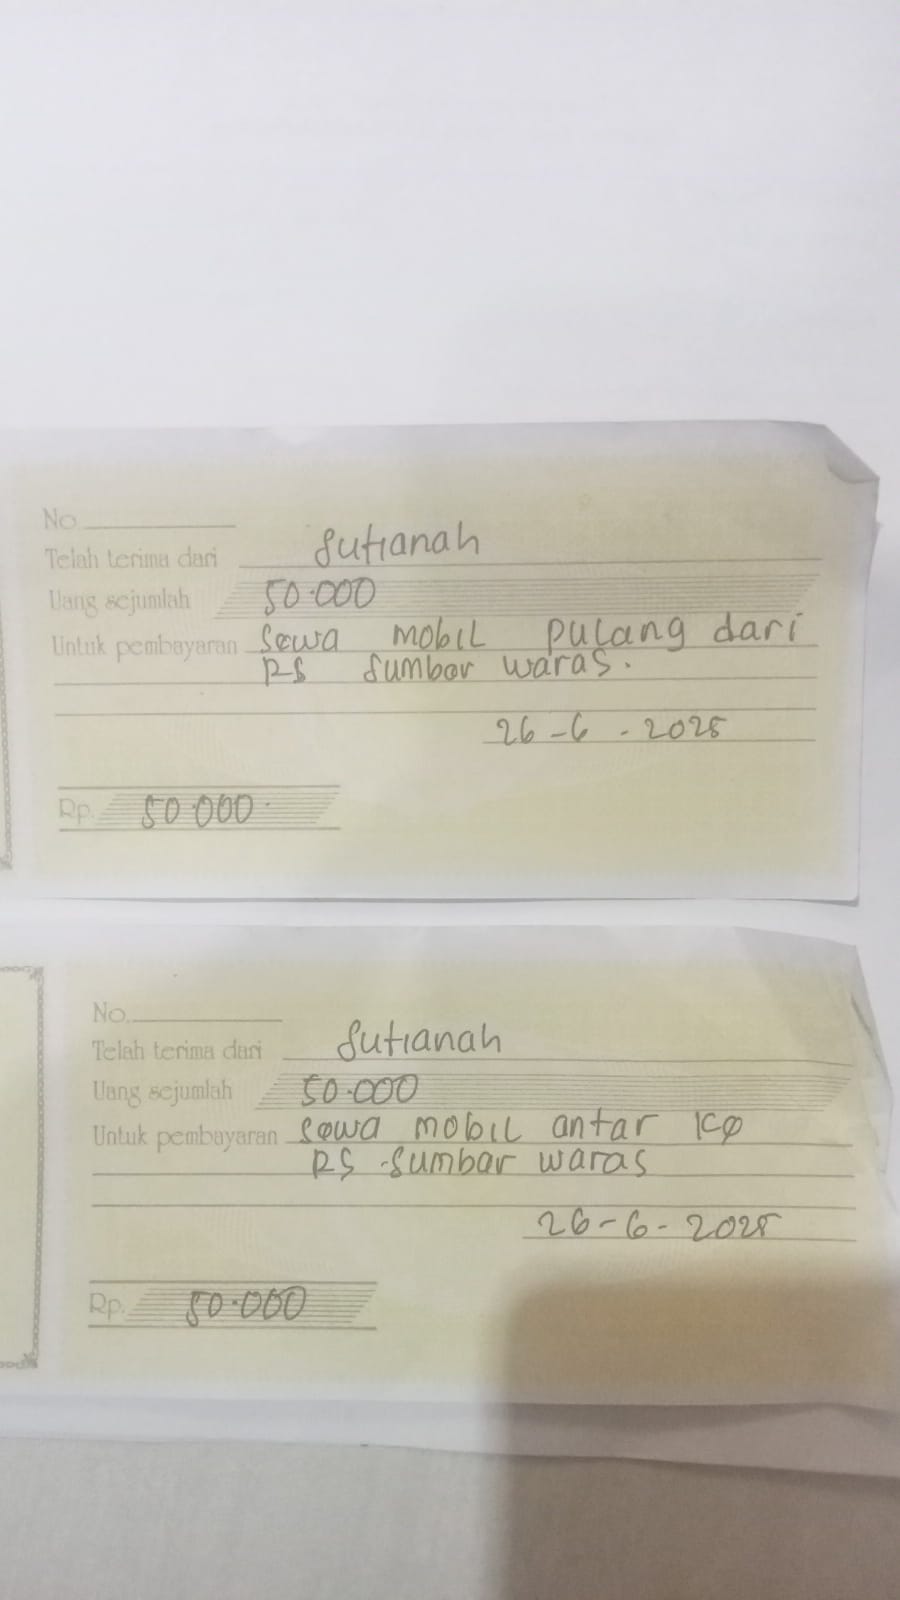 No.
Telah terima dari Sutianah
Uang sejumlah 50.000
Untuk pembayaran Sewa mobil pulang dari
RS Sumber waras.
26-6-2025
Rp. 50.000
No.
Telah terima dari Sutianah
Uang sejumlah 50.000
Untuk pembayaran Sewa mobil antar ke
RS Sumber waras
26-6-2025
Rp. 50.000